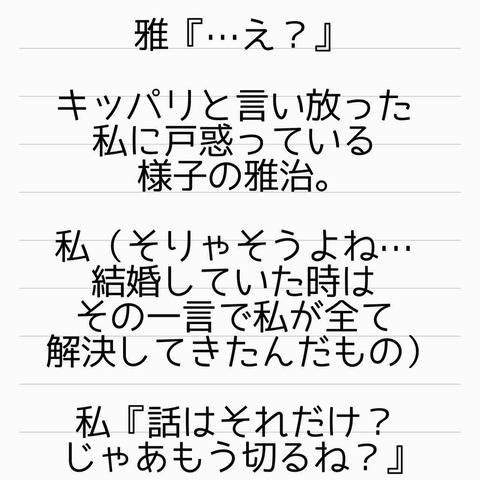 雅『…え？』
キッパリと言い放った
私に戸惑っている
様子の雅治。
私（そりゃそうよね…
結婚していた時は
その一言で私が全て
解決してきたんだもの）
私『話はそれだけ？
じゃあもう切るね？』